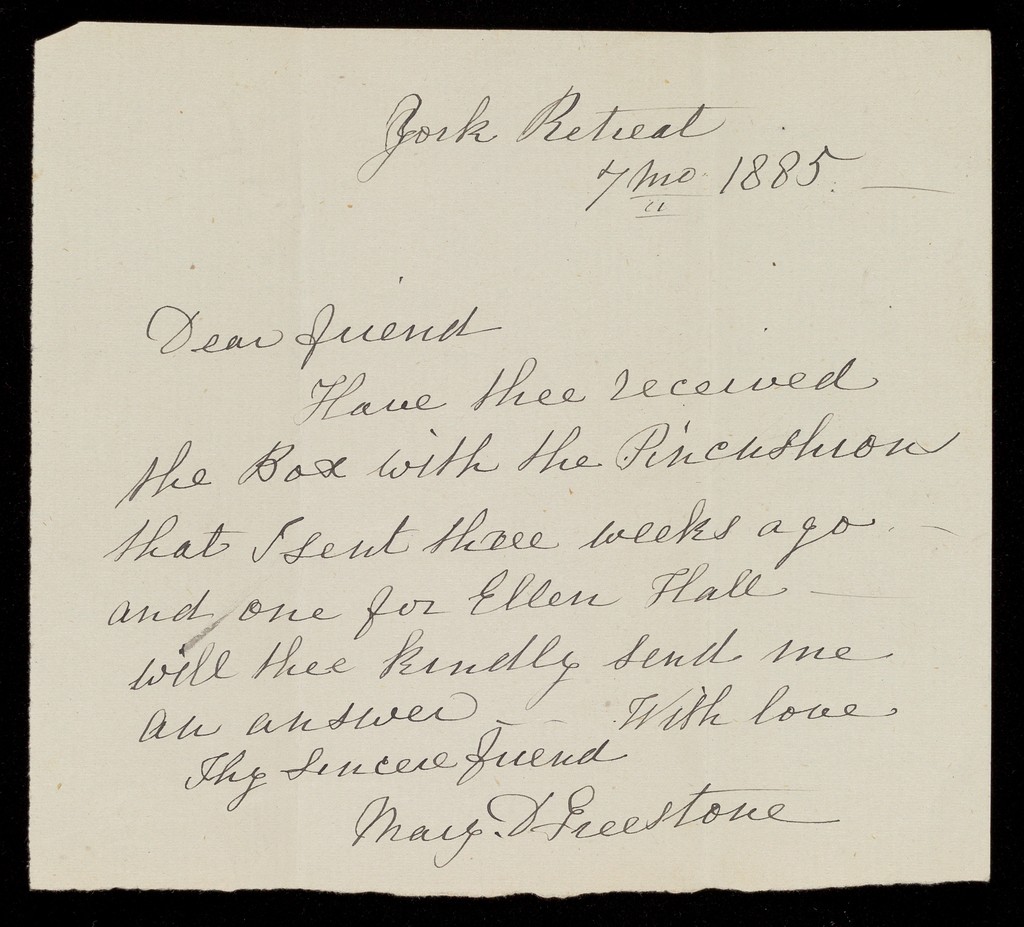 York Retreat
7 mo 1885.
Dear friend
Have thee received
the Box with the Pincushion
that I sent three weeks ago
and one for Ellen Hall
will thee kindly send me
an answer — With love
Thy sincere friend
Mary. D Freestone